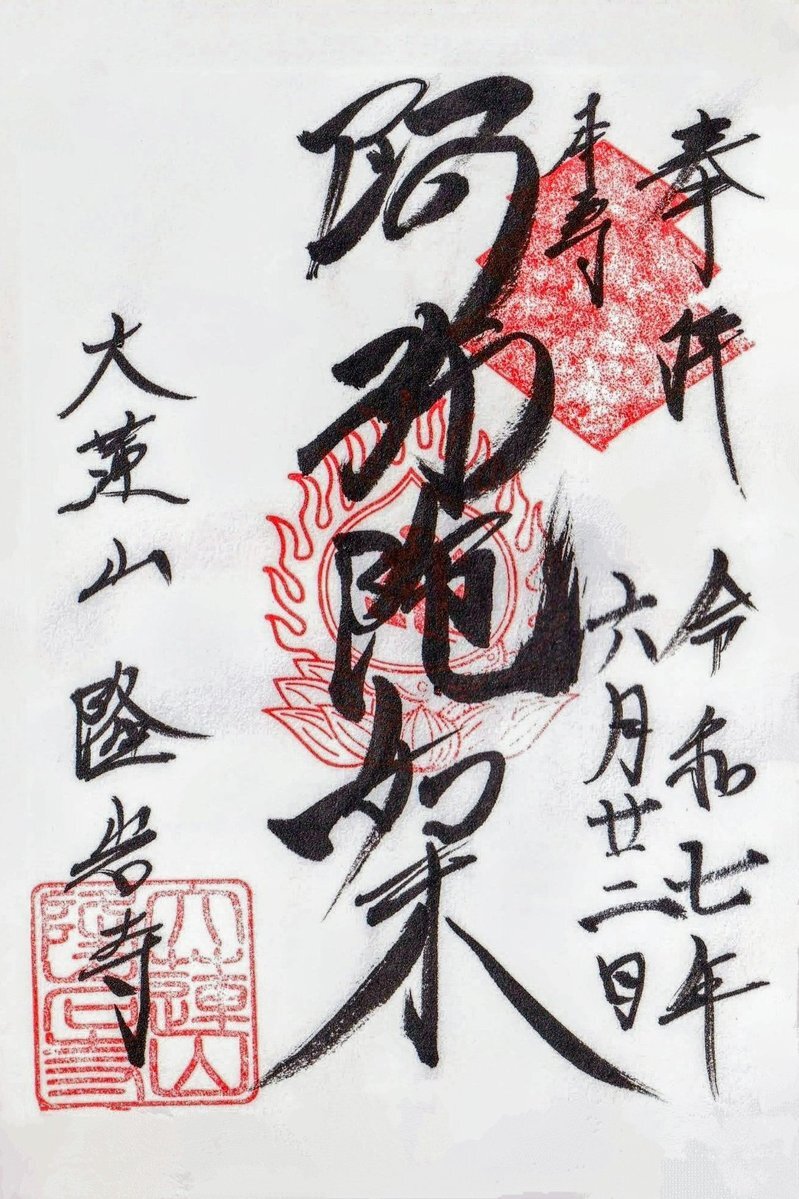 奉拝
令和七年
六月廿二日
本尊
阿弥陀如来
大蓮山 隆岩寺
大蓮山
隆岩寺